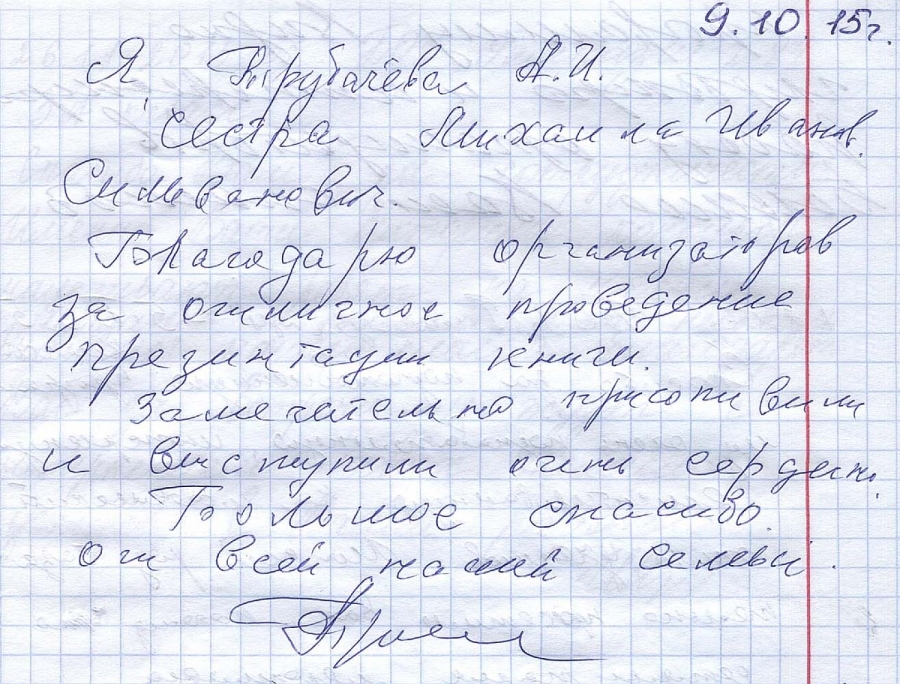 9.10.15г.
Я, Трубачёва А.И.
сестра Михаила Иванов.
Сильванович.
Благодарю организаторов
за отличное проведение
презинтации книги.
Замечательно
и выступили очень сердечно.
Большое спасибо
от всей нашей семьи.